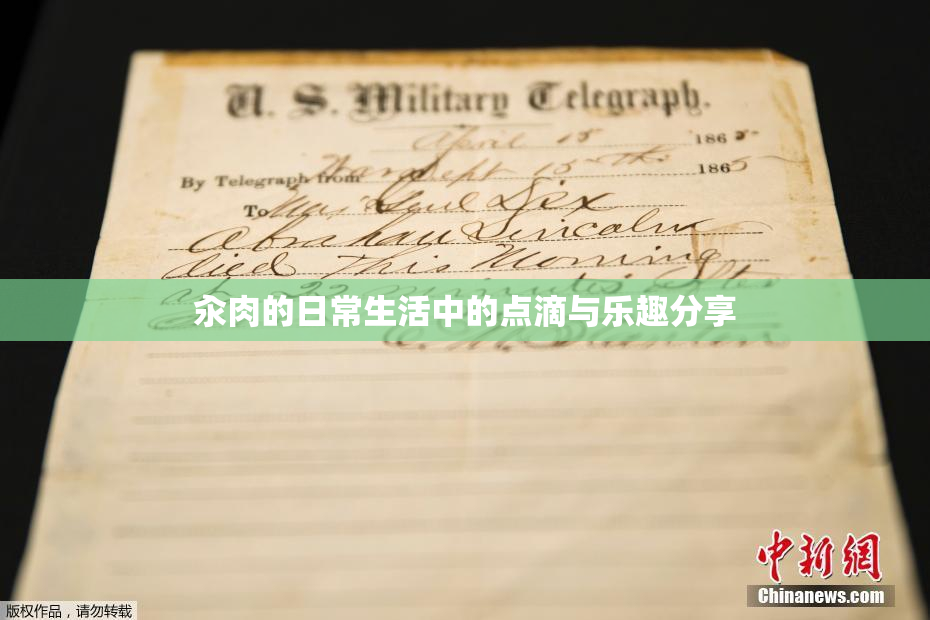 U. S. Military Telegraph.
April 15 1865
By Telegraph from War Dept 15th 1865
To Maj Genl Dix
Abraham Lincoln
died This Morning
at 22 minutes after
汆肉的日常生活中的点滴与乐趣分享
E. M. Stanton
中新网
Chinanews.com
版权作品，请勿转载